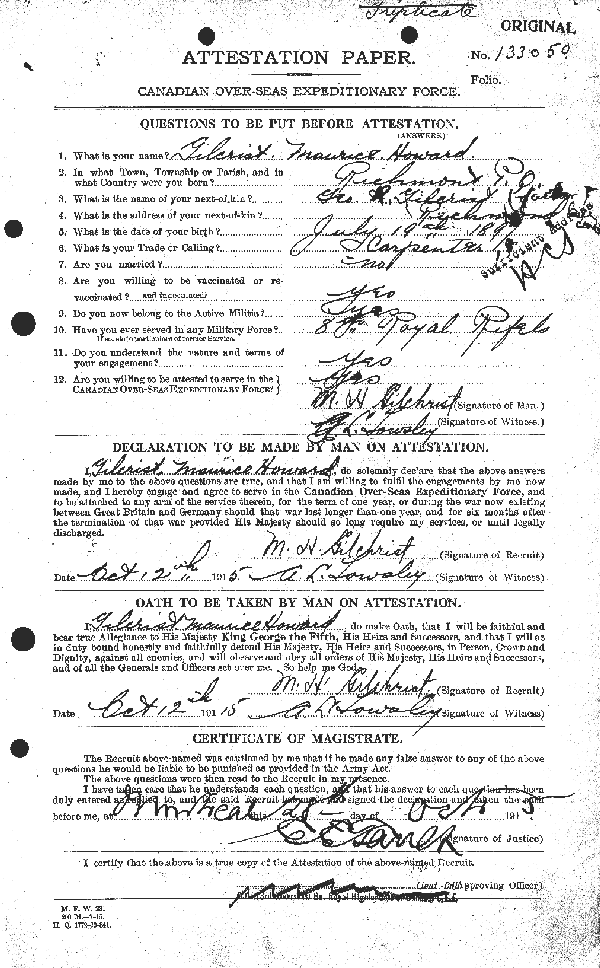 Triplicate
ORIGINAL
ATTESTATION PAPER.
No. 133059
Folio.
CANADIAN OVER-SEAS EXPEDITIONARY FORCE.
QUESTIONS TO BE PUT BEFORE ATTESTATION.
(ANSWERS)
1. What is your name? Gilcrist. Maurice Howard.
2. In what Town, Township or Parish, and in
what Country were you born? Richmond P.Q.
3. What is the name of your next-of-kin? Geo R. Gilcrist
4. What is the address of your next-of-kin? Richmond
5. What is the date of your birth? July 19th
6. What is your Trade or Calling? Carpenter
7. Are you married? no
8. Are you willing to be vaccinated or re-
vaccinated? and inoculated? Yes
9. Do you now belong to the Active Militia? Yes
10. Have you ever served in any Military Force? 8th Royal Rifels
If so, state particulars of former Service.
11. Do you understand the nature and terms of
your engagement? Yes
12. Are you willing to be attested to serve in the
CANADIAN OVER-SEAS EXPEDITIONARY FORCE? Yes
M. H Gilchrist (Signature of Man.)
A L Towsley (Signature of Witness.)
DECLARATION TO BE MADE BY MAN ON ATTESTATION.
I, Gilcrist Maurice Howard, do solemnly declare that the above answers
made by me to the above questions are true, and that I am willing to fulfil the engagements by me now
made, and I hereby engage and agree to serve in the Canadian Over-Seas Expeditionary Force, and
to be attached to any arm of the service therein, for the term of one year, or during the war now existing
between Great Britain and Germany should that war last longer than one year, and for six months after
the termination of that war provided His Majesty should so long require my services, or until legally
discharged.
M. H Gilchrist (Signature of Recruit)
Date Oct 12th 1915 A L Towsley (Signature of Witness)
OATH TO BE TAKEN BY MAN ON ATTESTATION.
I, Gilcrist Maurice Howard, do make Oath, that I will be faithful and
bear true Allegiance to His Majesty King George the Fifth, His Heirs and Successors, and that I will as
in duty bound honestly and faithfully defend His Majesty, His Heirs and Successors, in Person, Crown and
Dignity, against all enemies, and will observe and obey all orders of His Majesty, His Heirs and Successors,
and of all the Generals and Officers set over me. So help me God.
M. H Gilchrist (Signature of Recruit)
Date Oct 12th 1915 A L Towsley (Signature of Witness)
CERTIFICATE OF MAGISTRATE.
The Recruit above-named was cautioned by me that if he made any false answer to any of the above
questions he would be liable to be punished as provided in the Army Act.
The above questions were then read to the Recruit in my presence.
I have taken care that he understands each question, and that his answer to each question has been
duly entered as replied to, and the said Recruit has made and signed the declaration and taken the oath
before me, at Montreal this day of Oct 1915
(Signature of Justice)
I certify that the above is a true copy of the Attestation of the above-named Recruit.
(Approving Officer)
M. F. W. 23.
H. Q. 1772-39-841.